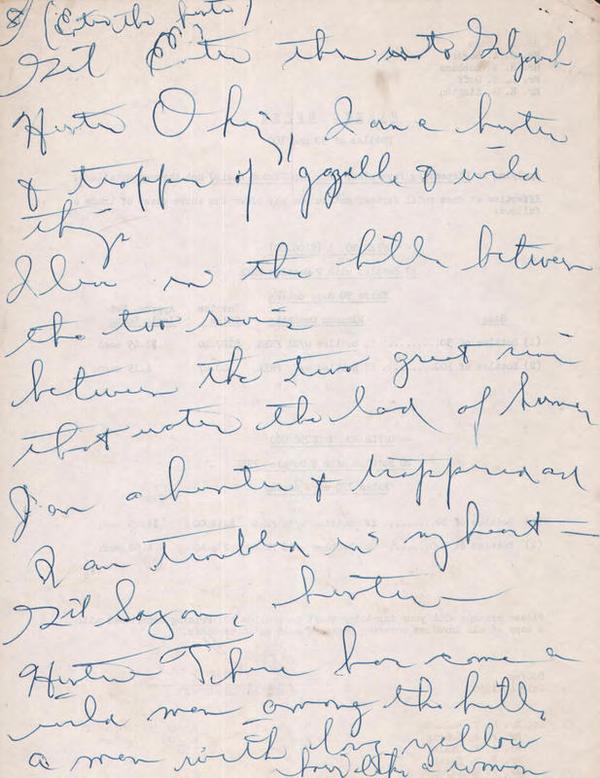 8/ (Enter the hunter)
Gil Enter then
Hunter O king, I am a hunter
& trapper of gazelle & wild
things
I live in the hills between
the two rivers
between the two great rivers
that water the land of
I am a hunter & trapper and
I am troubled in my heart —
Gil Say on, hunter —
Hunter There has come a
wild man among the hills,
a man with long yellow
hair like a woman